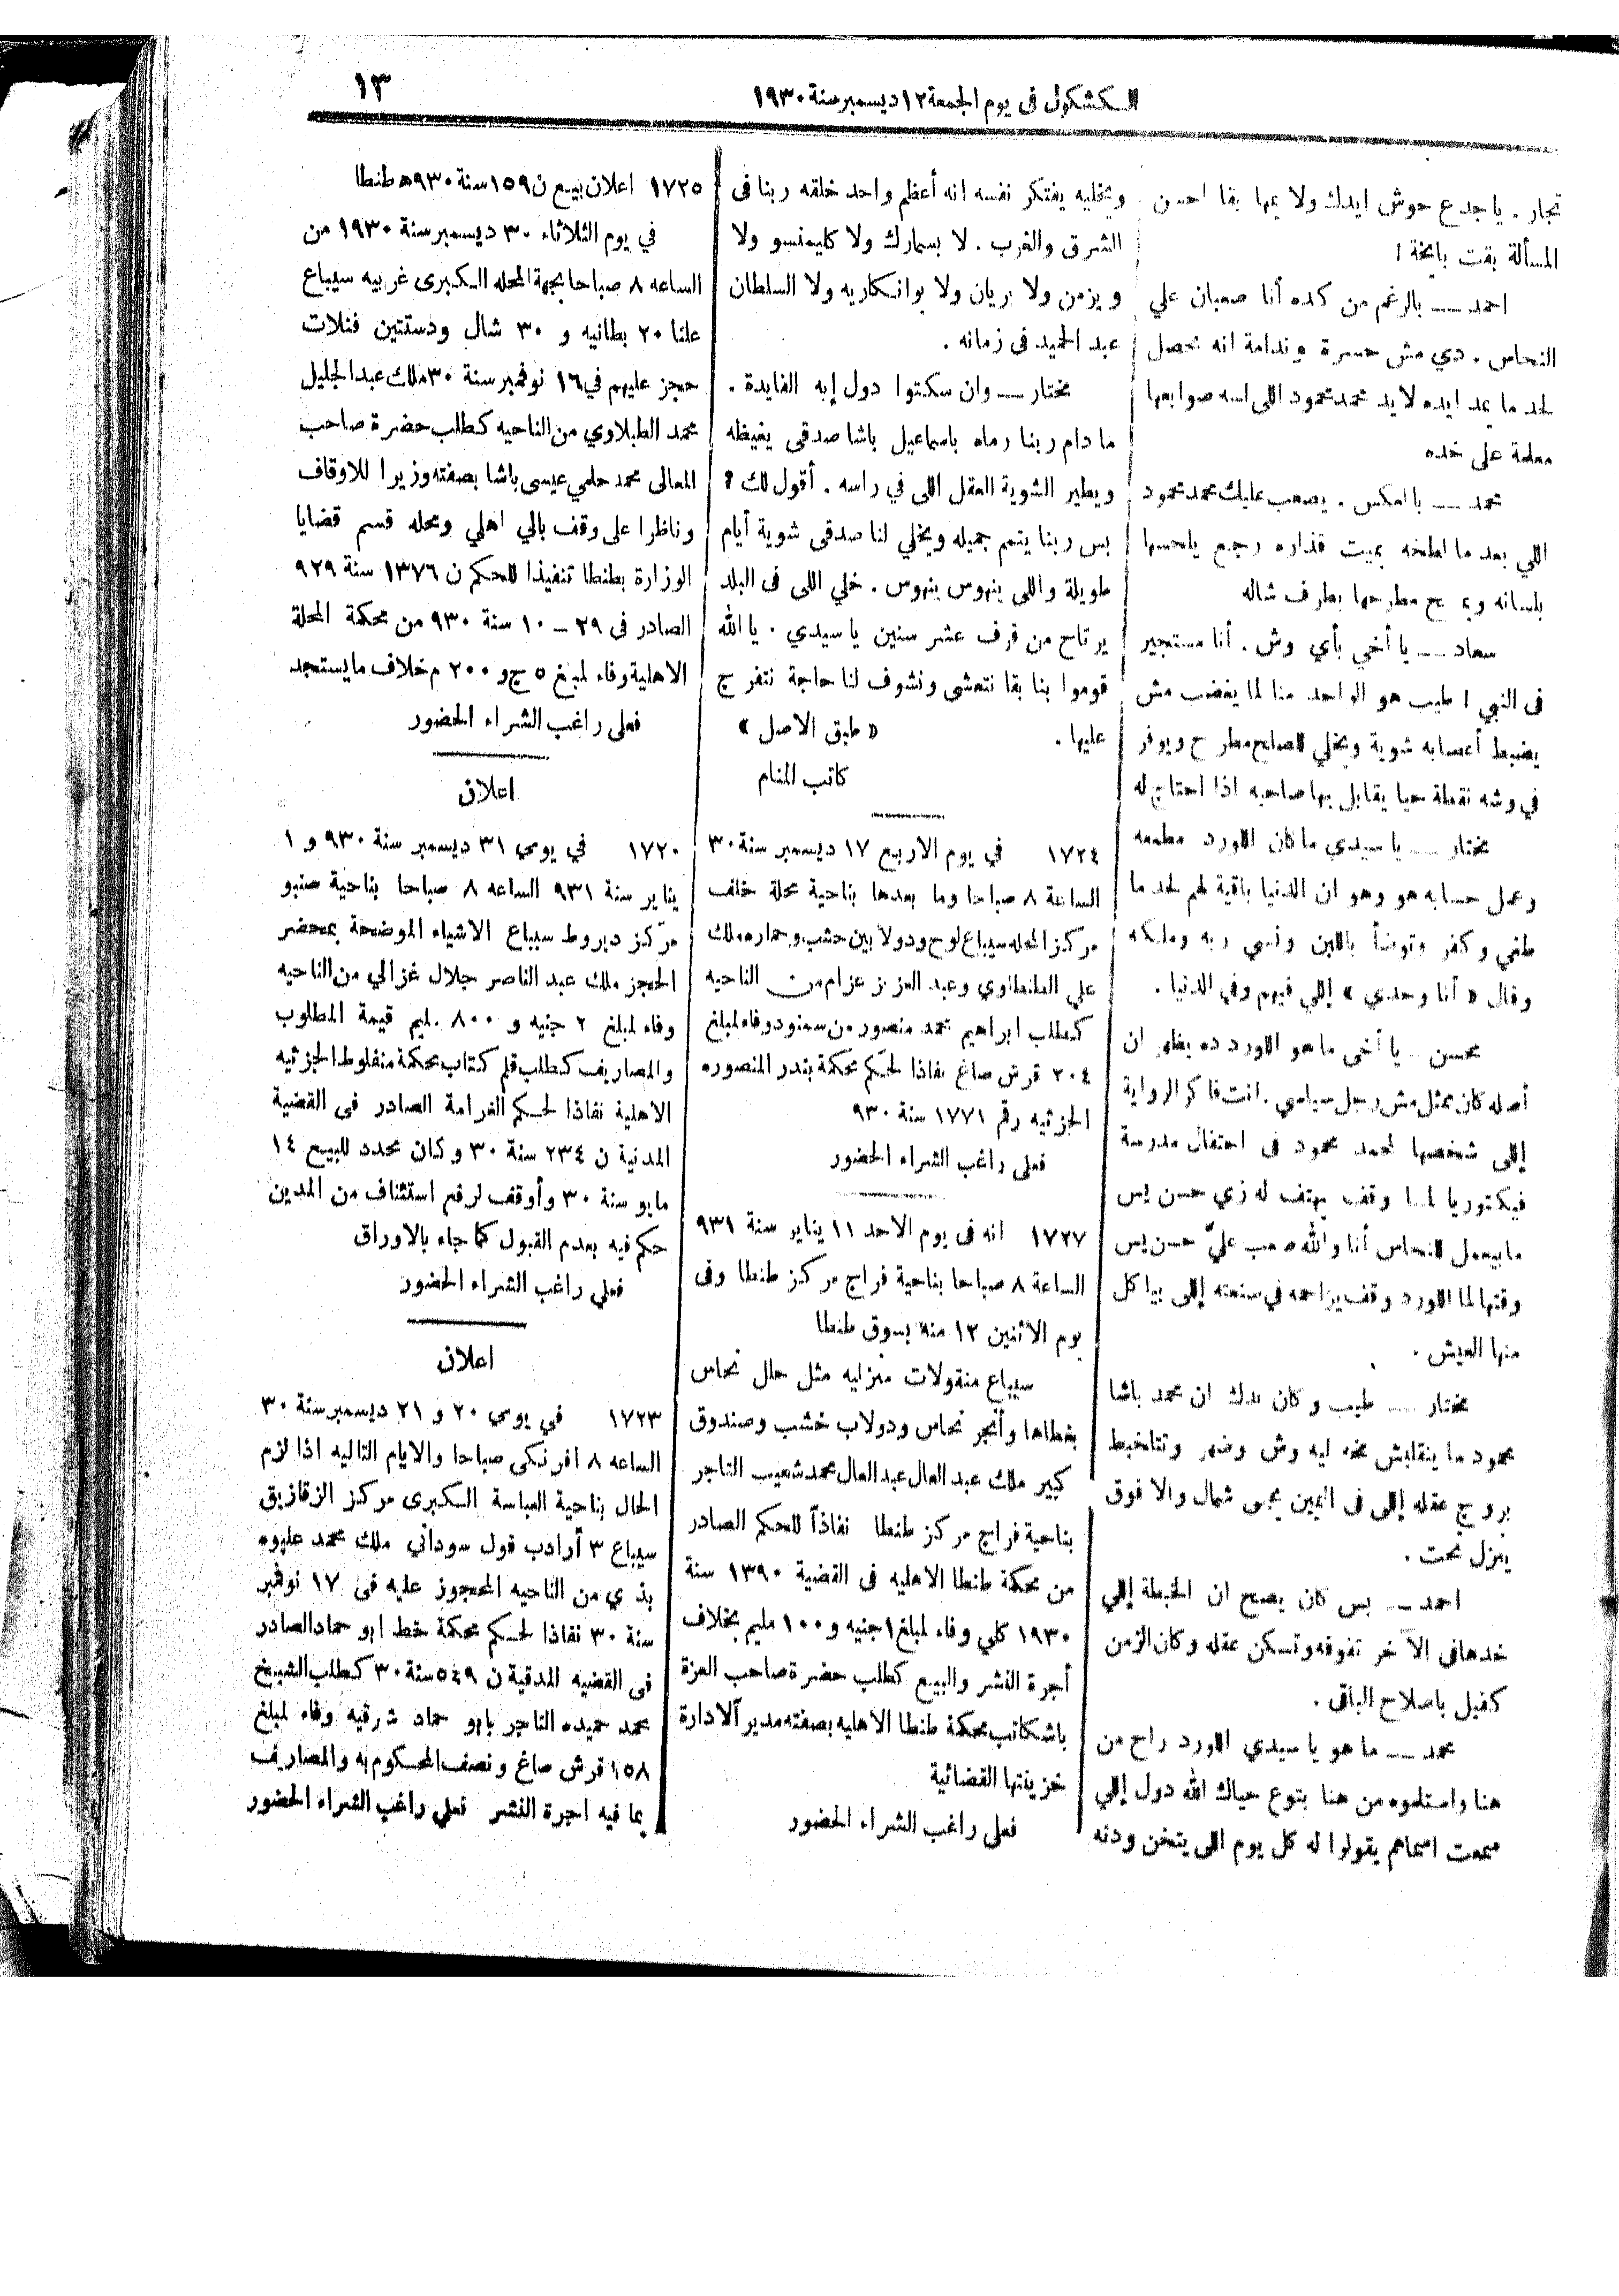 ١٣
الكشكول في يوم الجمعة ١٢ ديسمبر سنة ١٩٣٠
تجار . ياجدع حوش ايدك ولا بقا احسن
المسألة بقت بايخة !
احمد — بالرغم من كده أنا صعبان علي
النحاس . دي مش حسرة وندامة انه يحصل
لحد ما يمد ايده لايد محمد محمود اللى لسه صوابعها
معلمة على خده
محمد — بالعكس . يصعب عليك محمد محمود
اللي بعد ما لطخه بميت قذاره رجع يلحسها
بلسانه ويمسح مطرحها بطرف شاله
سعاد — يا أخي بأي وش . أنا مستجير
فى النبي ! طيب هو الواحد منا لما يغضب مش
يضبط أعصابه شوية ويخلي للصلح مطرح ويوفر
في وشه نقطة حيا يقابل بها صاحبه اذا احتاج له
مختار — يا سيدي ما كان اللورد مطمعه
وعمل حسابه هو وهو ان الدنيا باقية لهم لحد ما
طغي وكفر وتوضأ باللبن ونسي ربه وملكه
وقال « أنا وحدي » إللي فيهم وفي الدنيا .
محسن — يا أخى ما هو اللورد ده يظهر ان
أصله كان ممثل مش رجل سياسي . انت فاكر الرواية
إللى شخصها لمحمد محمود فى احتفال مدرسة
فيكتوريا لما وقف يهتف له زي حسن يس
ما بيعمل للنحاس أنا والله صعب عليّ حسن يس
وقتها لما اللورد وقف يزاحمه في صنعته إللى بياكل
منها العيش .
مختار — طيب وكان بدك ان محمد باشا
محمود ما ينقلبش مخه ليه وش وضهر وتتلخبط
بروج عقله إللى فى اليمين يجى شمال والا فوق
ينزل تحت .
احمد — بس كان يصح ان الخبطة إللي
خدها فى الآخر تفوقه وتسكن عقله وكان الزمن
كفيل باصلاح الباقى .
محمد — ما هو يا سيدي اللورد راح من
هنا واستلموه من هنا بتوع حياك الله دول إللي
سمعت اسماهم يقولوا له كل يوم اللى يتخن ودنه
ويخليه يفتكر نفسه انه أعظم واحد خلقه ربنا فى
الشرق والغرب . لا بسمارك ولا كليمنسو ولا
ويزمن ولا بريان ولا بوانكاريه ولا السلطان
عبد الحميد فى زمانه .
مختار — وان سكتوا دول إيه الفايدة .
ما دام ربنا رماه باسماعيل باشا صدقى يغيظه
ويطير الشوية العقل اللى في راسه . أقول لك ؟
بس ربنا يتمم جميله ويخلي لنا صدقى شوية أيام
طويلة واللى ينهوس ينهوس . خلي اللى فى البلد
يرتاح من قرف عشر سنين يا سيدي . يا الله
قوموا بنا بقا نتعشى ونشوف لنا حاجة نتفرج
عليها .
« طبق الاصل »
كاتب المنام
١٧٢٤ في يوم الاربع ١٧ ديسمبر سنة ٣٠
الساعة ٨ صباحا وما بعدها بناحية محلة خلف
مركز المحله سيباع لوح ودولابين خشب وحماره ملك
علي الطنطاوي وعبد العزيز عزام من الناحيه
كطلب ابراهيم محمد منصور من سمنود وفاء لمبلغ
٢٠٤ قرش صاغ نفاذا لحكم محكمة بندر المنصوره
الجزئيه رقم ١٧٧١ سنة ٩٣٠
فعلى راغب الشراء الحضور
١٧٢٧ انه فى يوم الاحد ١١ يناير سنة ٩٣١
الساعة ٨ صباحا بناحية فراج مركز طنطا وفى
يوم الاثنين ١٢ منه بسوق طنطا
سيباع منقولات منزليه مثل حلل نحاس
بغطاها وأنجر نحاس ودولاب خشب وصندوق
كبير ملك عبد العال عبد العال محمد شعيب التاجر
بناحية فراج مركز طنطا نفاذاً للحكم الصادر
من محكمة طنطا الاهليه فى القضية ١٣٩٠ سنة
١٩٣٠ كلي وفاء لمبلغ ١ جنيه و ١٠٠ مليم بخلاف
أجرة النشر والبيع كطلب حضرة صاحب العزة
باشكاتب محكمة طنطا الاهليه بصفته مدير آلادارة
خزينتها القضائية
فعلى راغب الشراء الحضور
١٧٢٥ اعلان بيع ن ١٥٩ سنة ٩٣٠ه طنطا
في يوم الثلاثاء ٣٠ ديسمبر سنة ١٩٣٠ من
الساعه ٨ صباحا بجهة المحله الكبرى غربيه سيباع
علنا ٢٠ بطانيه و ٣٠ شال ودستتين فنلات
حجز عليهم في ١٦ نوفمبر سنة ٣٠ ملك عبد الجليل
محمد الطبلاوي من الناحيه كطلب حضرة صاحب
المعالى محمد حلمي عيسى باشا بصفته وزيرا للاوقاف
وناظرا على وقف بالي اهلي ومحله قسم قضايا
الوزارة بطنطا تنفيذا للحكم ن ١٣٧٦ سنة ٩٢٩
الصادر فى ٢٩ - ١٠ سنة ٩٣٠ من محكمة المحلة
الاهلية وفاء لمبلغ ٥ ج و ٢٠٠ م خلاف ما يستجد
فعلى راغب الشراء الحضور
اعلان
١٧٢٠ في يومي ٣١ ديسمبر سنة ٩٣٠ و ١
يناير سنة ٩٣١ الساعه ٨ صباحا بناحية سنبو
مركز ديروط سيباع الاشياء الموضحة بمحضر
الحجز ملك عبد الناصر جلال غزالي من الناحيه
وفاء لمبلغ ٢ جنيه و ٨٠٠ مليم قيمة المطلوب
والمصاريف كطلب قلم كتاب محكمة منفلوط الجزئيه
الاهلية نفاذا لحكم الغرامة الصادر فى القضية
المدنية ن ٢٣٤ سنة ٣٠ وكان محدد للبيع ١٤
مايو سنة ٣٠ وأوقف لرفع استئناف من المدين
حكم فيه بعدم القبول كما جاء بالاوراق
فعلي راغب الشراء الحضور
اعلان
١٧٢٣ في يومي ٢٠ و ٢١ ديسمبر سنة ٣٠
الساعه ٨ افرنكى صباحا والايام التاليه اذا لزم
الحال بناحية العباسة الكبرى مركز الزقازيق
سيباع ٣ أرادب فول سوداني ملك محمد عليوه
من الناحيه المحجوز عليه فى ١٧ نوفمبر
سنة ٣٠ نفاذا لحكم محكمة خط ابو حماد الصادر
فى القضيه المدنية ن ٥٤٩ سنة ٣٠ كطلب الشيخ
محمد حميده التاجر بابو حماد شرقيه وفاء لمبلغ
١٥٨ قرش صاغ ونصف المحكوم به والمصاريف
بما فيه اجرة النشر فعلي راغب الشراء الحضور